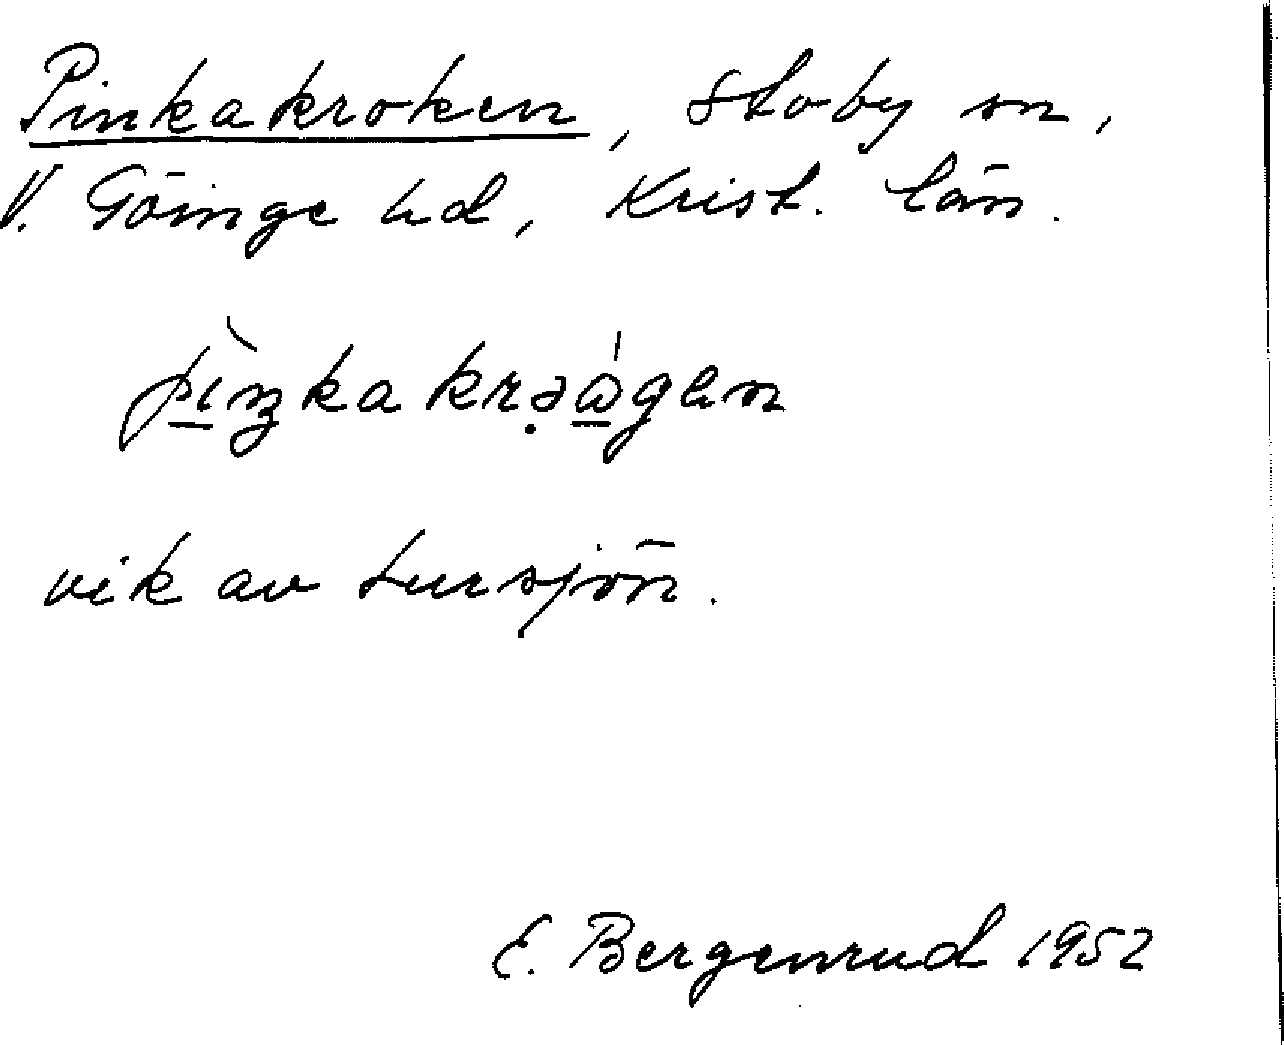 Pinkakroken, Stoby sn,
V. Göinge hd, Krist. län.
vik av Lursjön.
E. Bergenrud 1952